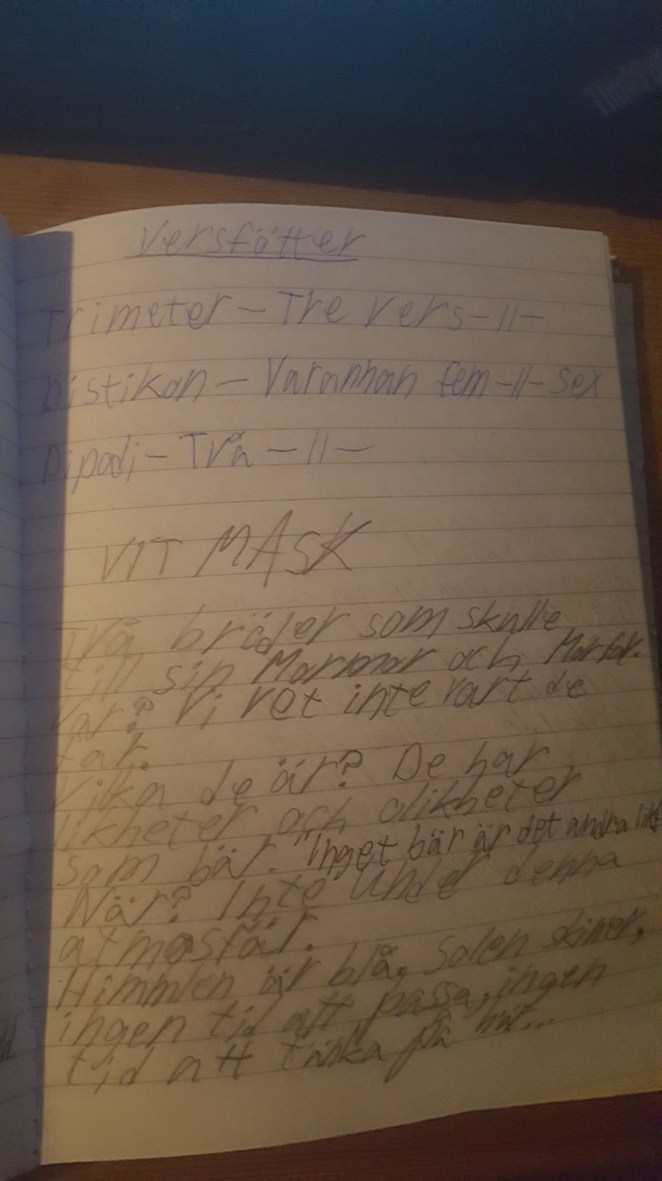 Versfötter
Trimeter - Tre vers -11-
Distikon - Varannan fem -11- sex
Dipodi - Två -11-
VIT MASK
Två bröder som skulle
till sin Mormor och Morfar.
Var? Vi vet inte vart de
far.
Vilka de är? De har
likheter och olikheter
som bär. "Inget bär är det andra likt
När? Inte under denna
atmosfär.
Himmlen är blå, Solen skiner,
ingen tid att passa, ingen
tid att tänka på